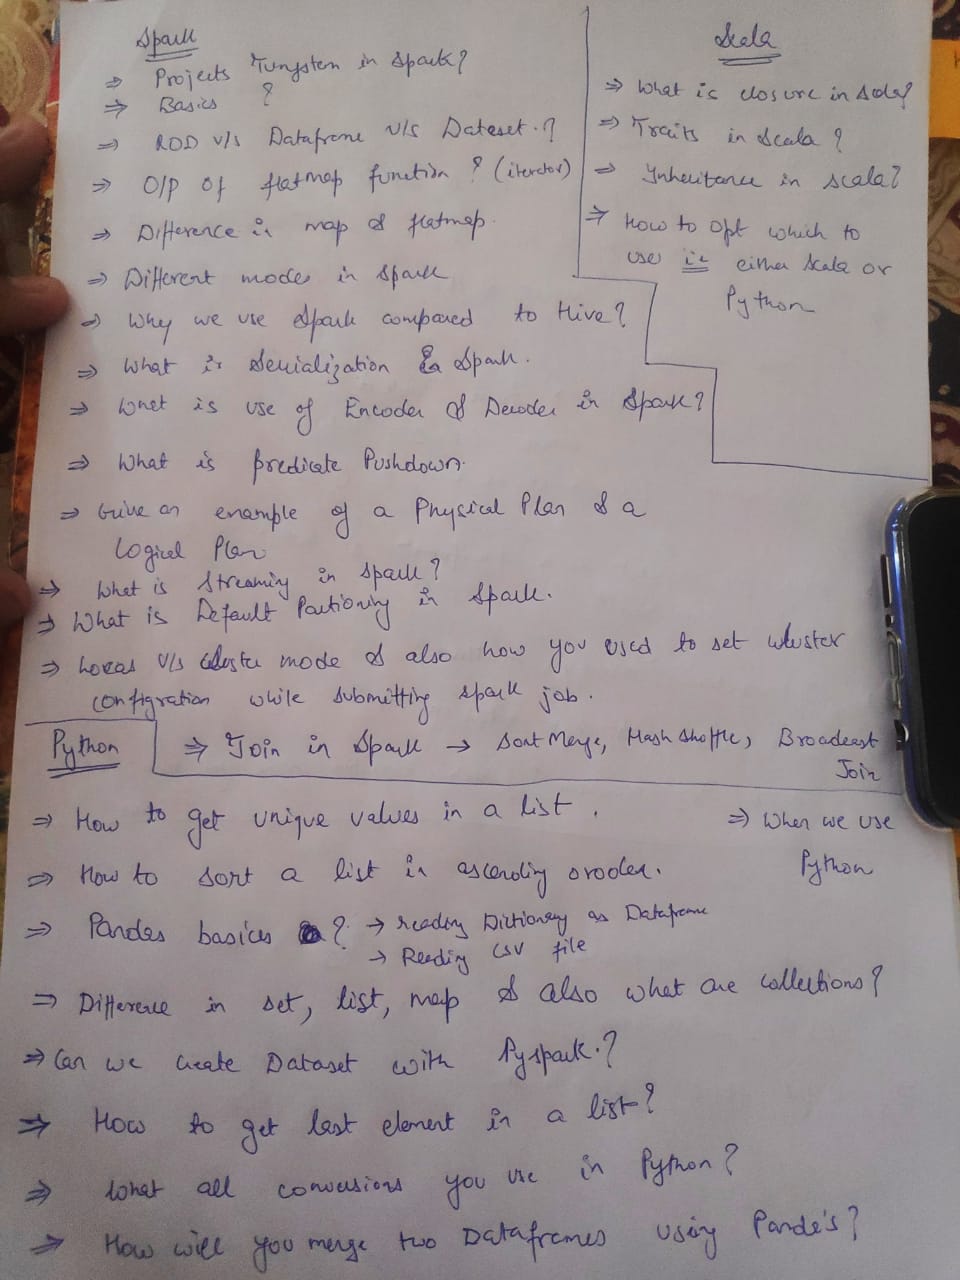 Spark
⇒ Projects Tungsten in Spark?
⇒ Basics ?
⇒ RDD v/s Dataframe v/s Dataset.?
⇒ O/P of flatmap function ? (iterator)
⇒ Difference in map & flatmap.
⇒ Different modes in Spark
⇒ Why we use Spark compared to Hive?
⇒ What is Serialization in Spark.
⇒ What is use of Encoder & Decoder in Spark?
⇒ What is predicate Pushdown.
⇒ Give an example of a Physical Plan & a
Logical Plan
⇒ What is Streaming in Spark?
⇒ What is Default Partioning in Spark.
⇒ Local v/s cluster mode & also how you used to set cluster
configration while submitting spark job.
⇒ Join in Spark → Sort Merge, Hash Shuffle, Broadcast
Join
Scala
⇒ What is closure in Scala?
⇒ Traits in Scala ?
⇒ Inheritance in Scala?
⇒ How to opt which to
use ie either Scala or
Python
Python
⇒ How to get unique values in a list.
⇒ When we use
Python
⇒ How to sort a list in ascending order.
⇒ Pandas basics ? → reading Dictionary as Dataframe
→ Reading CSV file
⇒ Difference in set, list, map & also what are collections?
⇒ Can we create Dataset with Pyspark.?
⇒ How to get last element in a list?
⇒ What all conversions you use in Python?
⇒ How will you merge two Dataframes using Panda's?